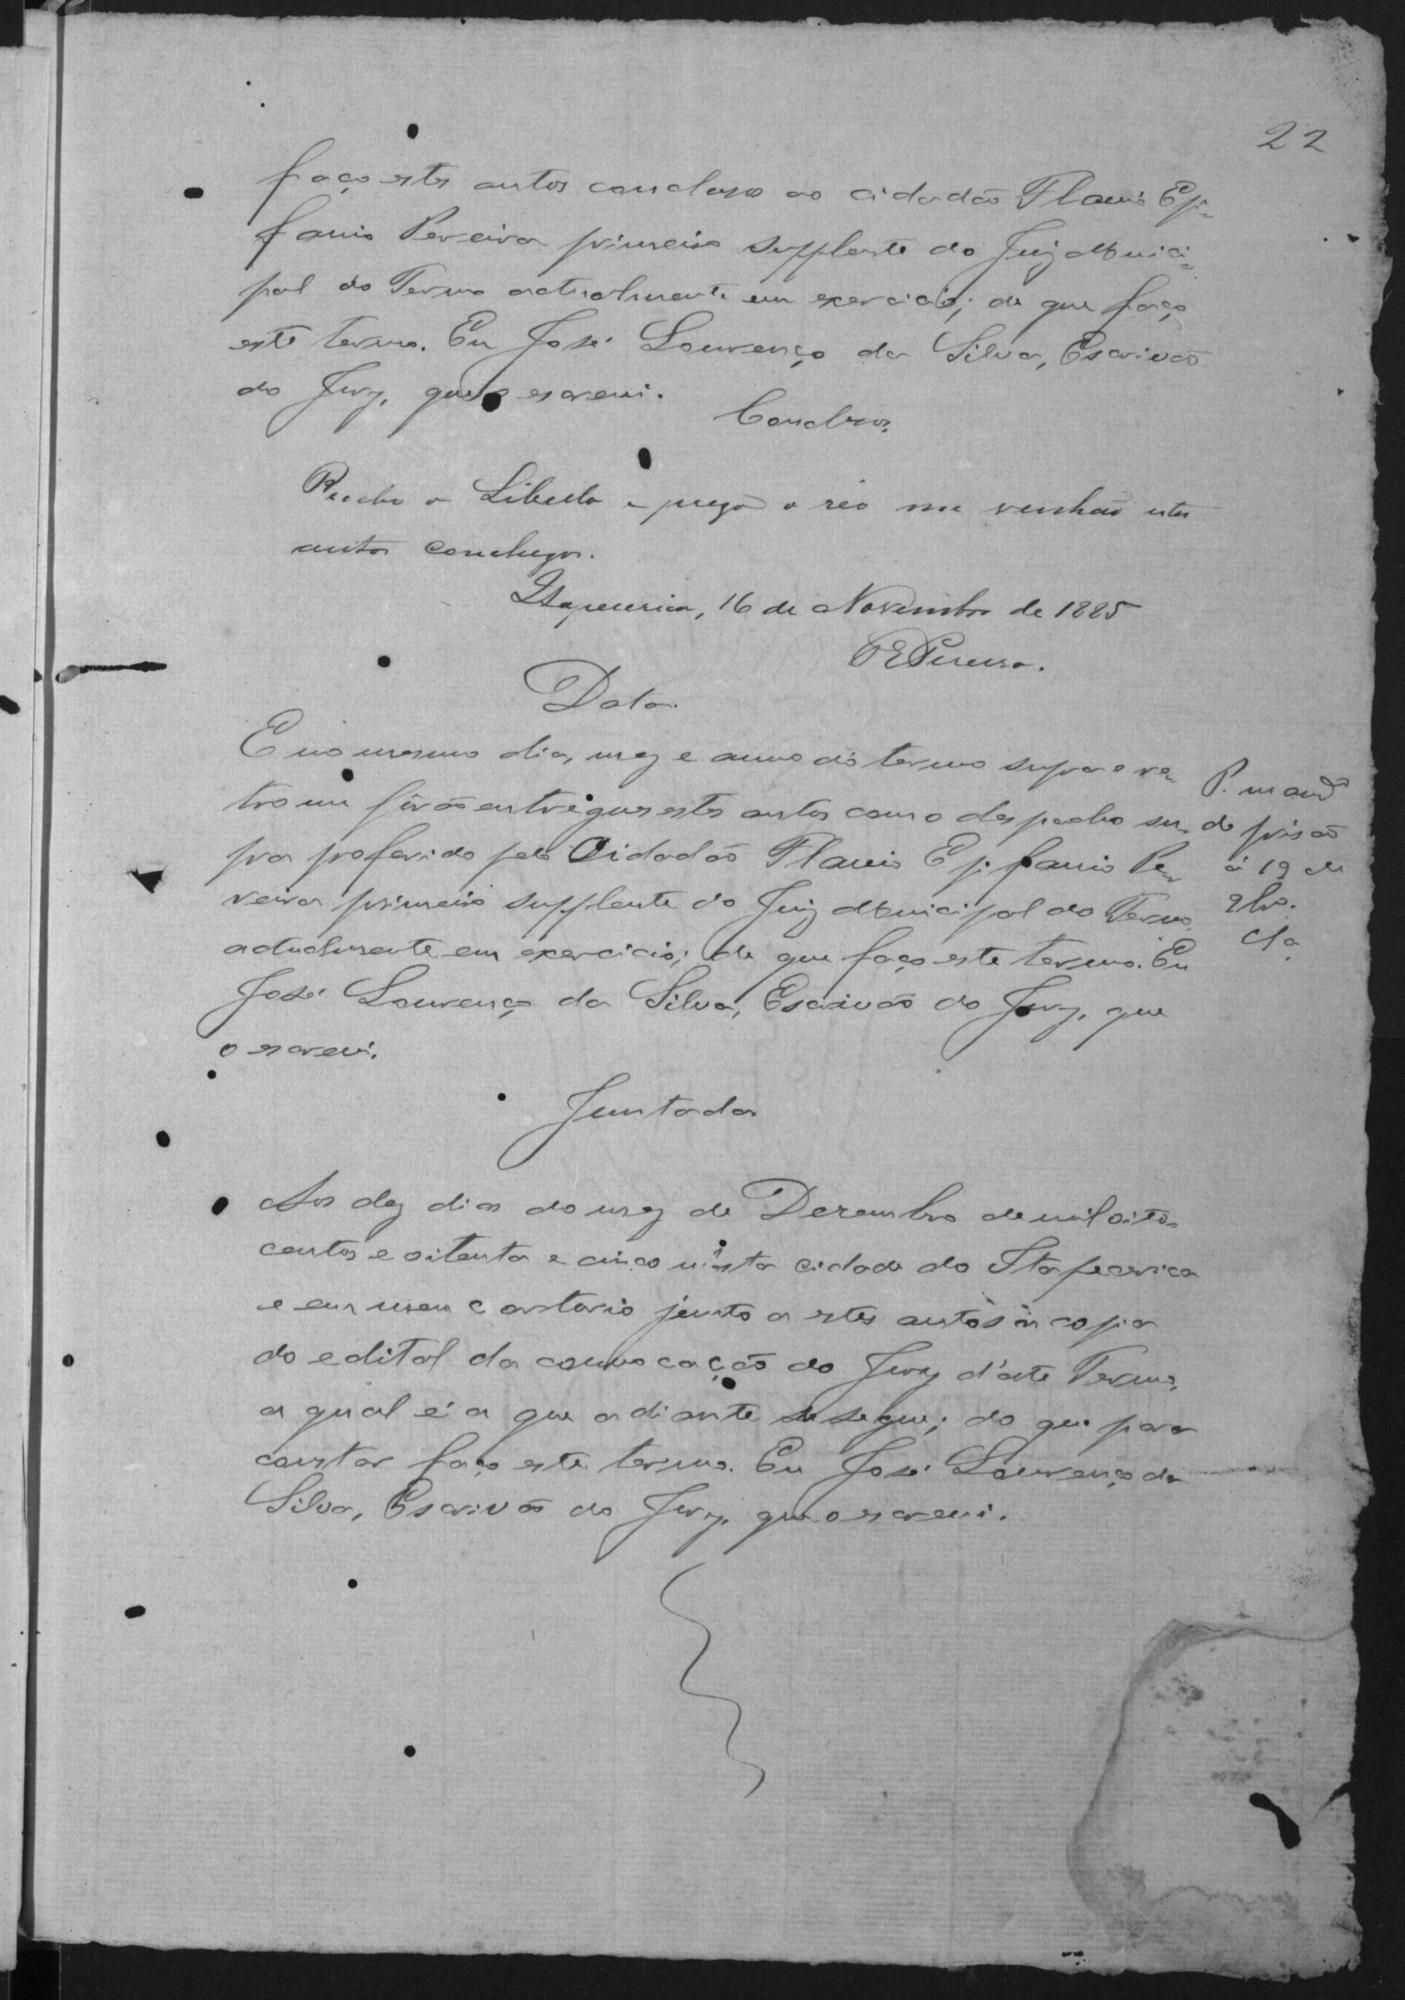 22
faço estes autos conclusos ao cidadão Flavio Epi-
fanio Pereira primeiro supplente do Juiz Munici-
pal do Termo actualmente em exercicio; do que faço
este termo. Eu José Lourenço da Silva, Escrivão
do Jury, que o escrevi.
Conclusos.
Recebo o Libello e prezo o réo me venhão estes
autos conclusos.
Itapecerica, 16 de Novembro de 1885
F E Pereira.
Data.
E no mesmo dia, mez e anno do termo supra e re-
tro me forão entregues estes autos com o despacho su-
pra proferido pelo Cidadão Flavio Epifanio Pe-
reira primeiro supplente do Juiz Municipal do Termo
actualmente em exercicio; de que faço este termo. Eu
José Lourenço da Silva, Escrivão do Jury, que
o escrevi.
P. mand.º
de prisão
á 19 de
9bro.
Juntada
Aos dez dias do mez de Dezembro de mil oito-
centos e oitenta e cinco n'esta cidade do Itapecerica
e em meu cartorio junto a estes autos a copia
do edital da convocação do Jury d'este Termo,
a qual é a que adiante se segue; do que para
constar faço este termo. Eu José Lourenço da
Silva, Escrivão do Jury, que o escrevi.